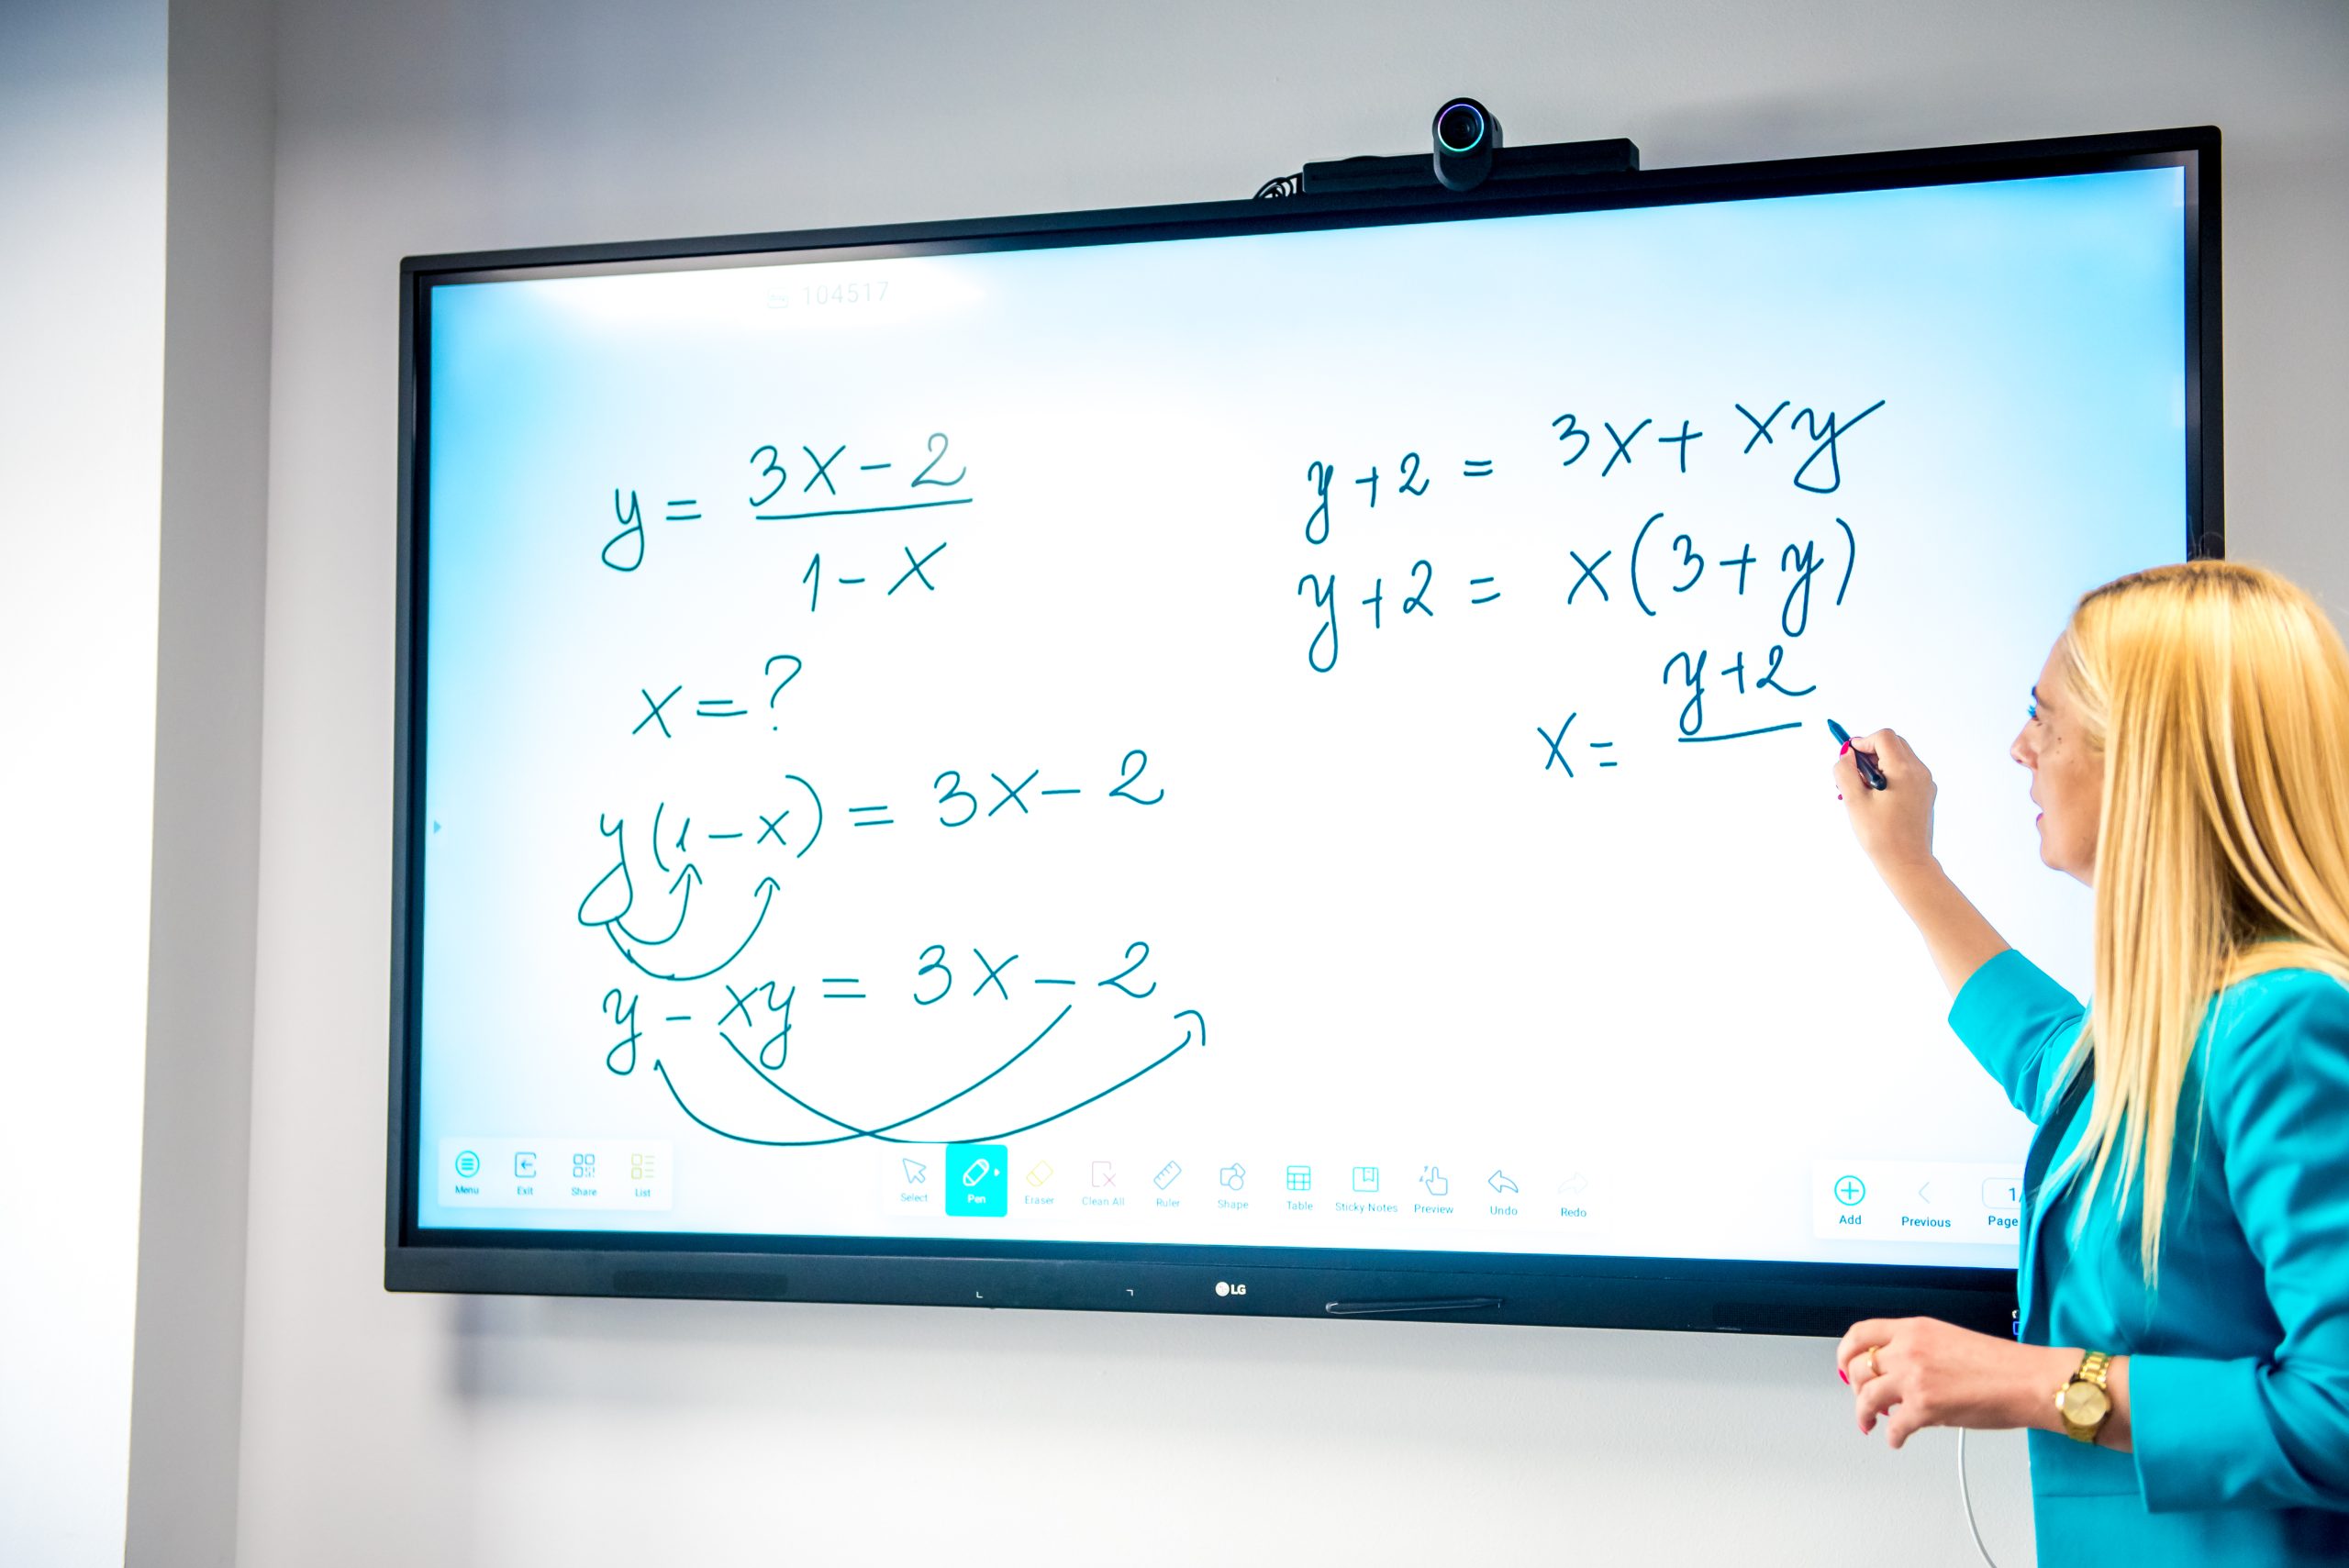 104517
y = 3x - 2
1 - x
x = ?
y (1 - x) = 3x - 2
y - xy = 3x - 2
y + 2 = 3x + xy
y + 2 = x (3 + y)
y + 2
x =
Menu Exit Share List
Select Pen Eraser Clean All Ruler Shape Table Sticky Notes Preview Undo Redo
Add Previous Page
1/
LG